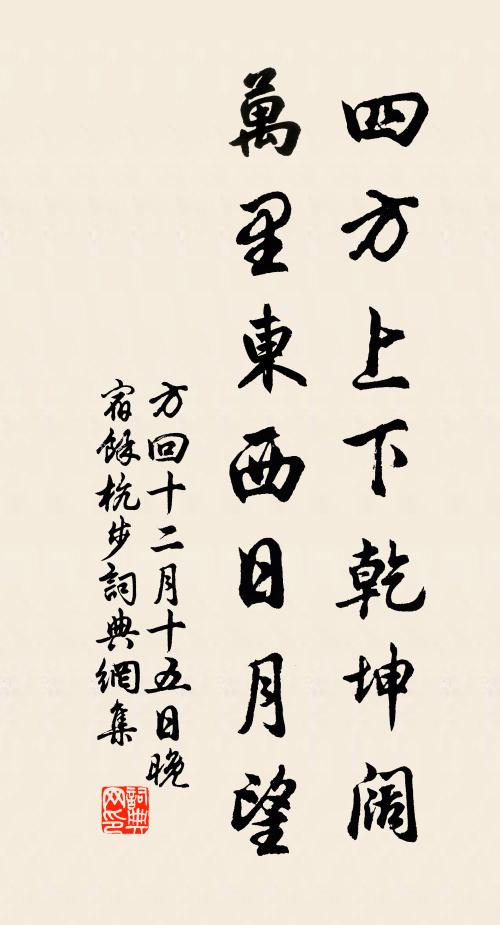 四方上下乾坤阔
萬里東西日月望
方回十二月十五日晚
宿餘杭步詞典網集
詞典
网印